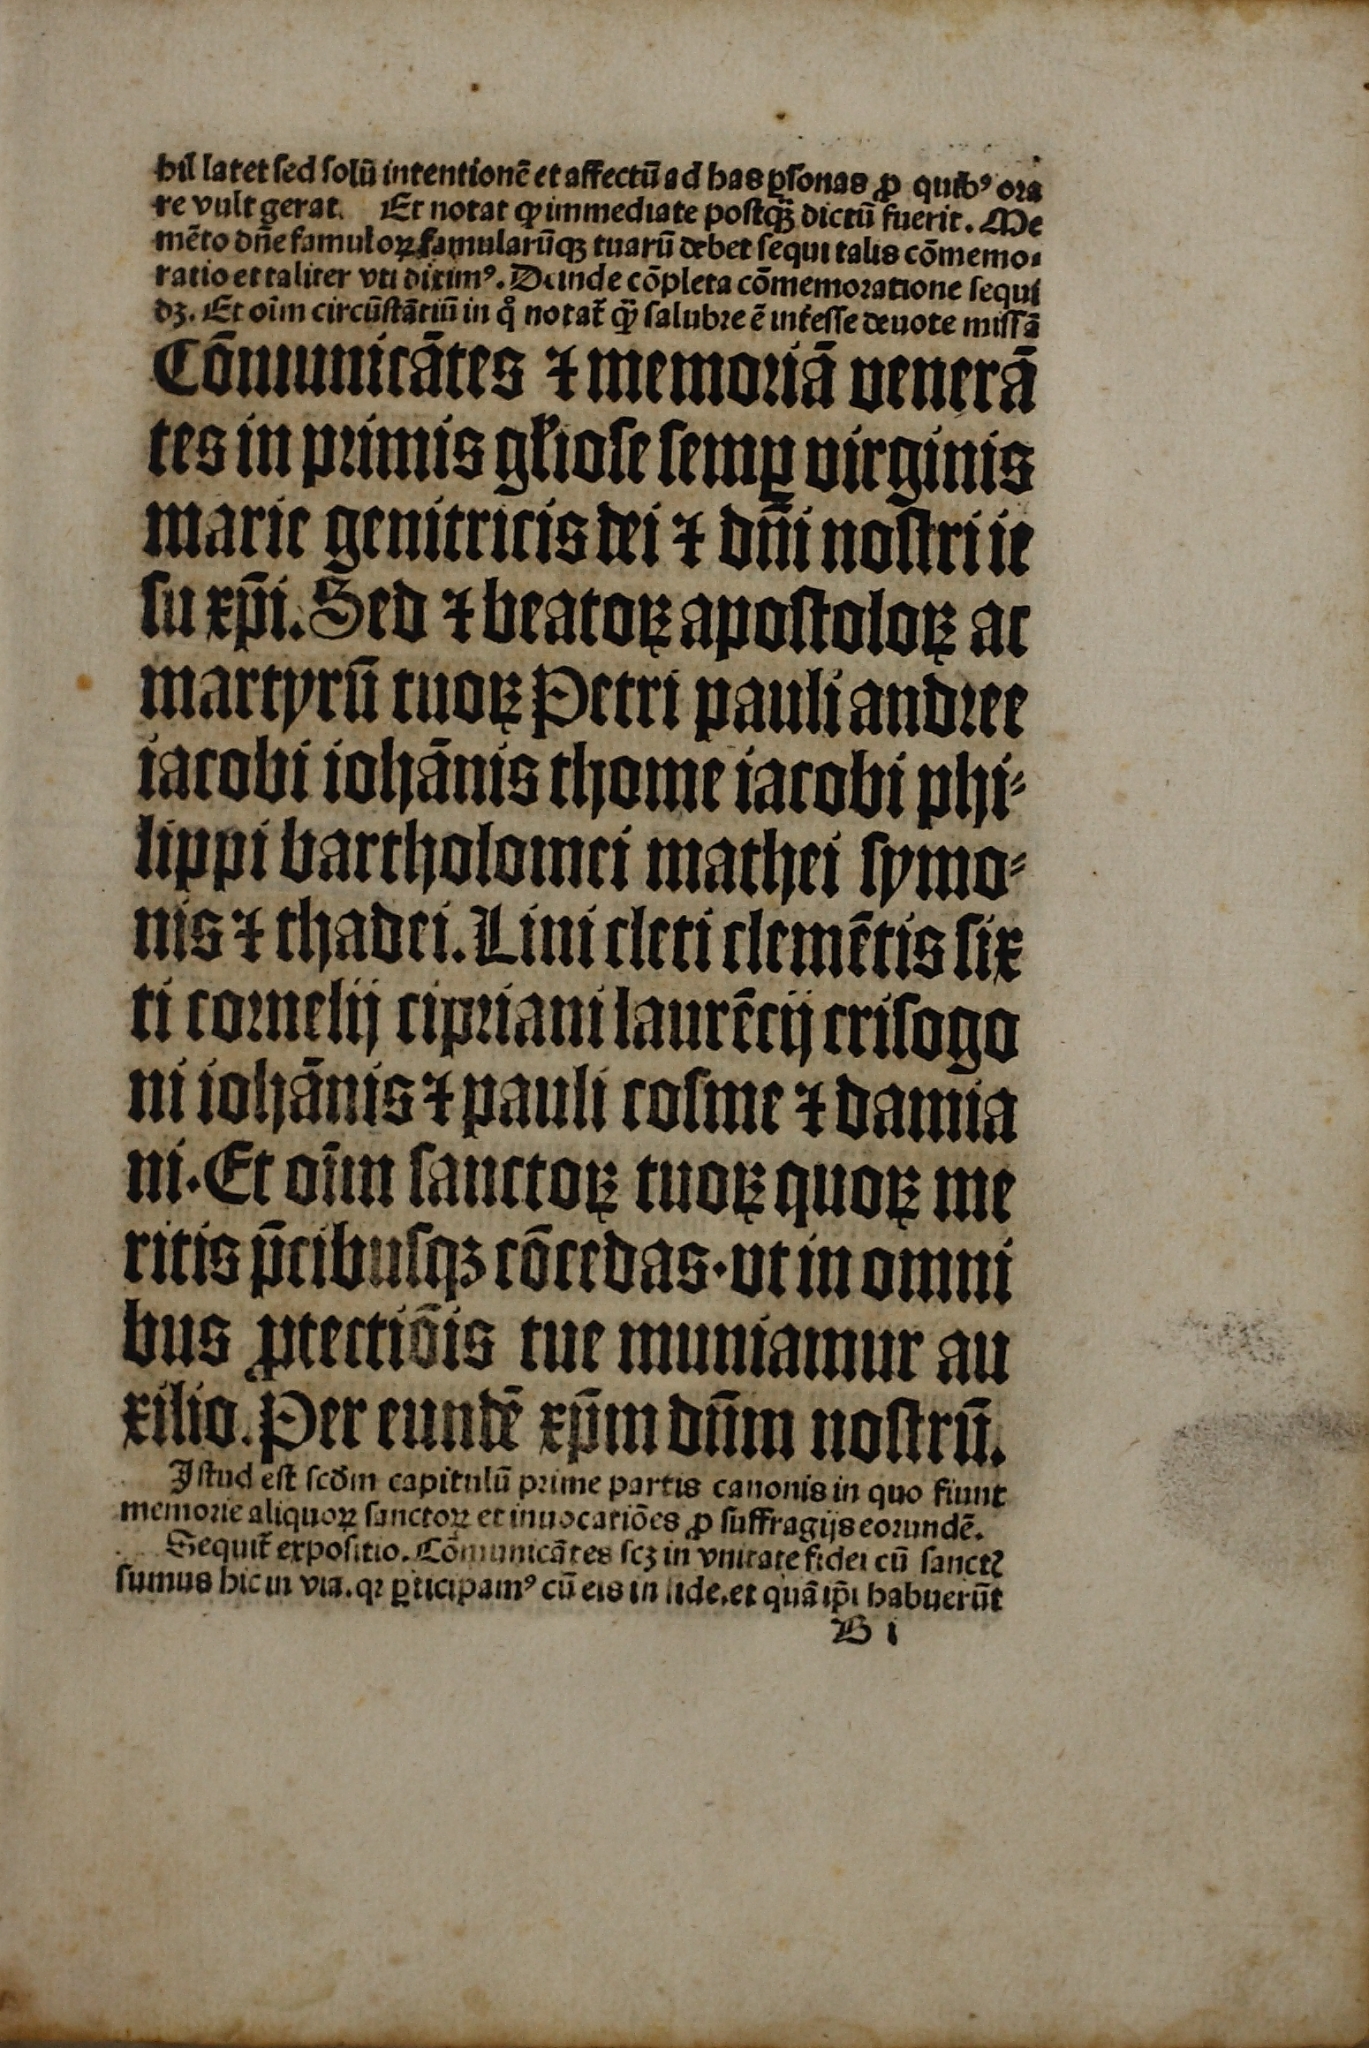 hil latet sed solū intentionē et affectū ad has ꝑsonas ꝓ quibꝰ ora
re vult gerat. Et notat ꝙ immediate postꝗ̄ dictū fuerit. Me
mēto dn̄e famuloꝝ famularūqꝫ tuarū debet sequi talis cōmemo-
ratio et taliter vti diximꝰ. Deinde cōpleta cōmemoratione sequi
dꝫ. Et oīm circūstātiū in qͦ notat̄ ꝙ̄ salubre ē int̄esse deuote missā
Cōmunicātes ⁊ memoriā venerā
tes in primis gl̓iose semꝑ virginis
marie genitricis dei ⁊ dn̄i nostri ie
su xp̄i. Sed ⁊ beatoꝝ apostoloꝝ ac
martyrū tuoꝝ Petri pauli andree
iacobi iohānis thome iacobi phi⸗
lippi bartholomei mathei symo⸗
nis ⁊ thadei. Lini cleti clemētis six
ti cornelij cipriani laurēcij crisogo
ni iohānis ⁊ pauli cosme ⁊ damia
ni. Et oīm sanctoꝝ tuoꝝ quoꝝ me
ritis p̄cibusqꝫ cōcedas. vt in omni
bus ꝓtectiōis tue muniamur au
xilio. Per eundē xp̄m dn̄m nostrū.
Istud est scd̄m capitulū prime partis canonis in quo fiunt
memorie aliquoꝝ sanctoꝝ et inuocatiōes ꝓ suffragijs eorundē.
Sequit̄ expositio. Cōmunicātes scꝫ in vnitate fidei cū sanctꝭ
sumus hic in via. qꝛ ꝑticipamꝰ cū eis in fide. et quā ip̄i habuerūt
B i